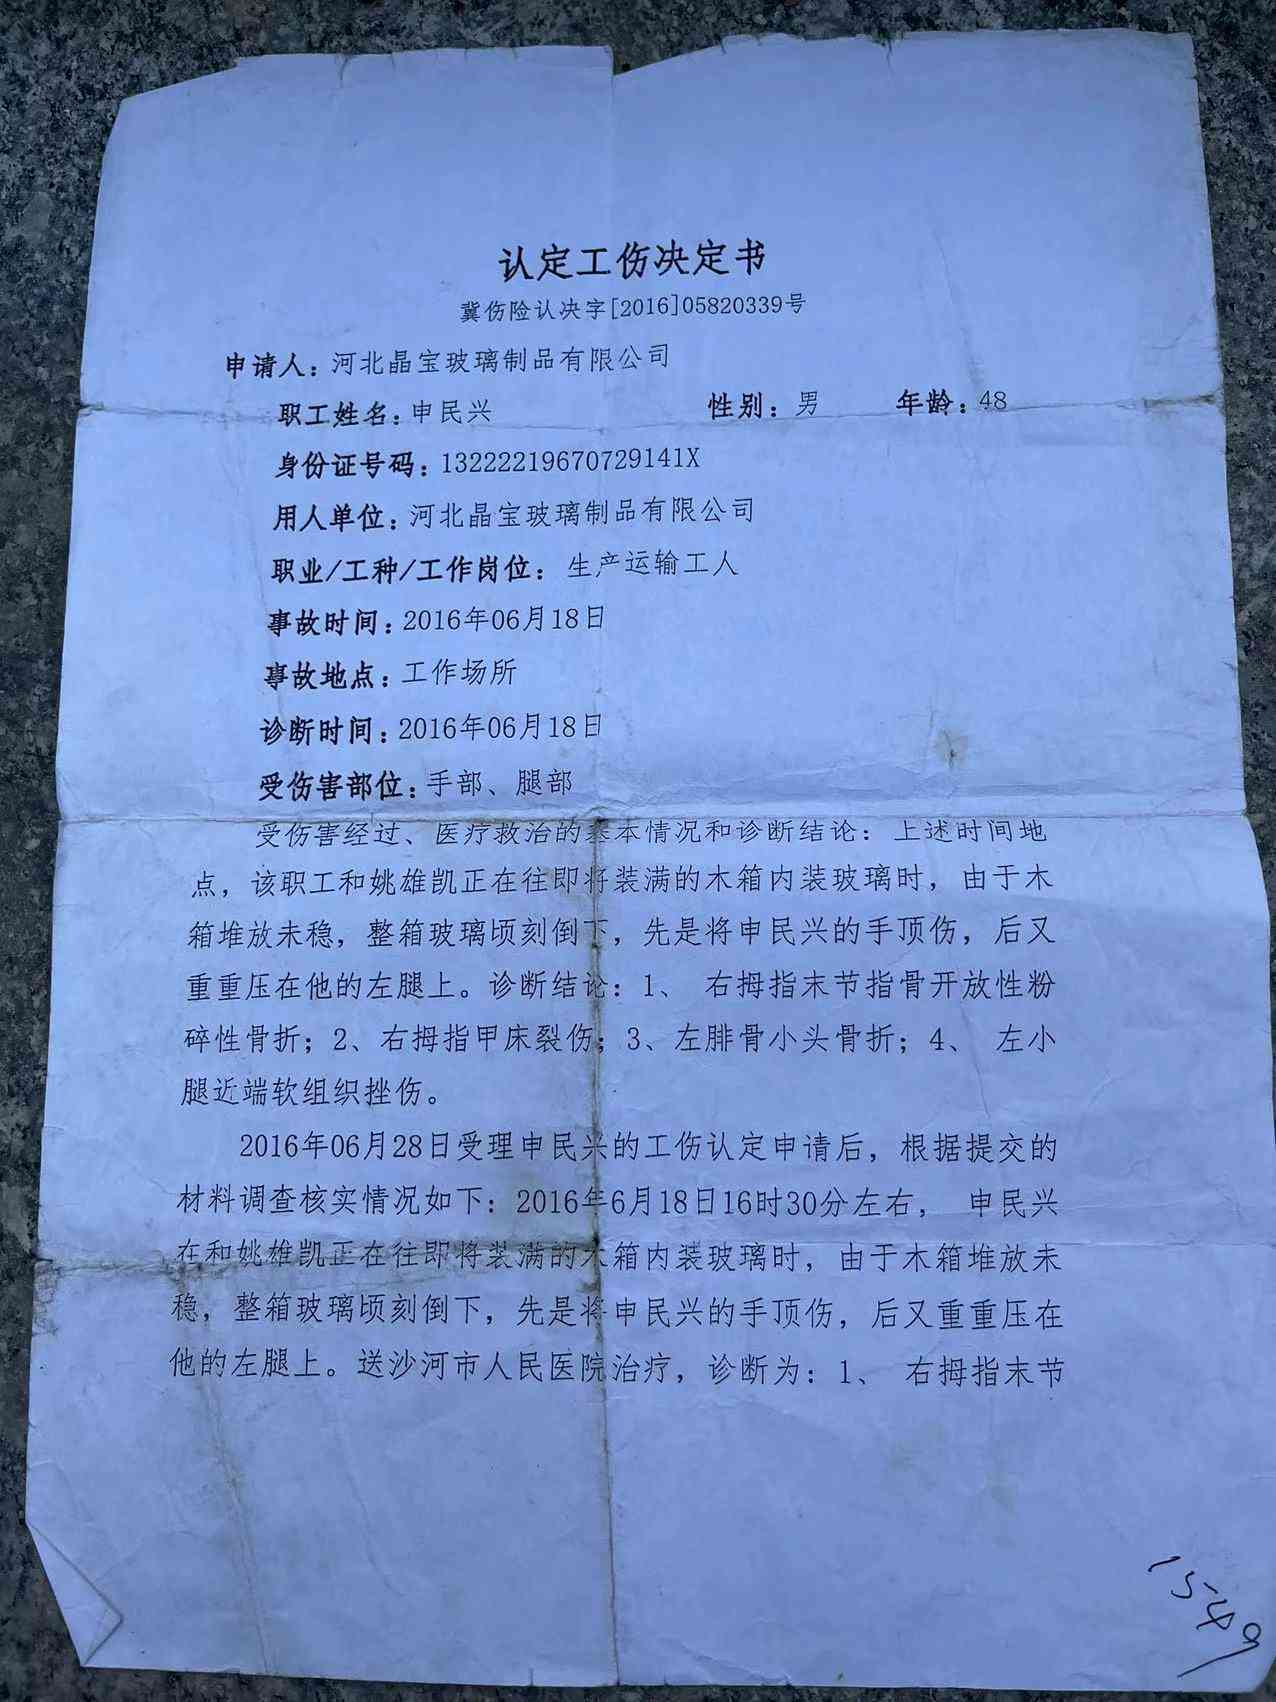 认定工伤决定书
冀伤险认决字[2016]05820339号
申请人：河北晶宝玻璃制品有限公司
职工姓名：申民兴 性别：男 年龄：48
身份证号码：13222219670729141X
用人单位：河北晶宝玻璃制品有限公司
职业/工种/工作岗位：生产运输工人
事故时间：2016年06月18日
事故地点：工作场所
诊断时间：2016年06月18日
受伤害部位：手部、腿部
受伤害经过、医疗救治的基本情况和诊断结论：上述时间地
点，该职工和姚雄凯正在往即将装满的木箱内装玻璃时，由于木
箱堆放未稳，整箱玻璃顷刻倒下，先是将申民兴的手顶伤，后又
重重压在他的左腿上。诊断结论：1、 右拇指末节指骨开放性粉
碎性骨折；2、右拇指甲床裂伤；3、左腓骨小头骨折；4、 左小
腿近端软组织挫伤。
2016年06月28日受理申民兴的工伤认定申请后，根据提交的
材料调查核实情况如下：2016年6月18日16时30分左右， 申民兴
在和姚雄凯正在往即将装满的木箱内装玻璃时，由于木箱堆放未
稳，整箱玻璃顷刻倒下，先是将申民兴的手顶伤，后又重重压在
他的左腿上。送沙河市人民医院治疗，诊断为：1、 右拇指末节
1549